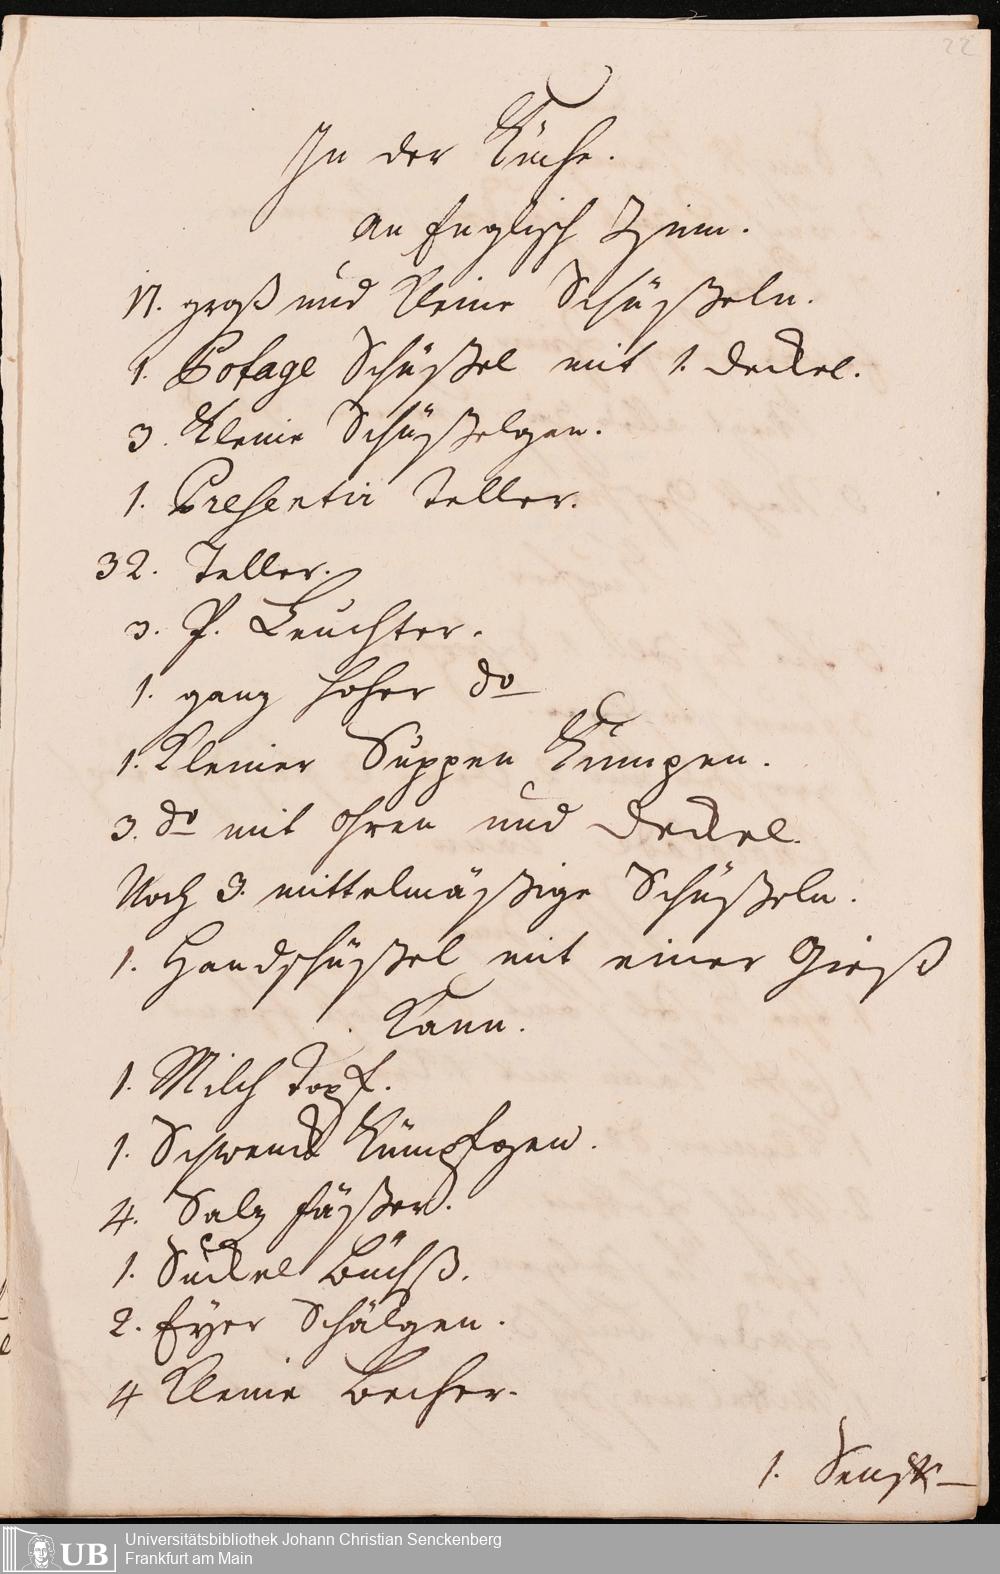 22
In der Küche.
an Englisch Zinn.
17. groß und kleine Schüßeln.
1. Potage Schüßel mit 1. Deckel.
3. kleine Schüßelgen.
1. Presentir Teller.
32. Teller.
3. P. Leuchter.
1. ganz hoher do
1. kleiner Suppen Kumpen.
3. do mit Ohren und Deckel.
Noch 3. mittelmäßige Schüßeln.
1. Handschüßel mit einer Gieß
Kann.
1. Milch Topf.
1. Schwenck Kümpfgen.
4. Salz Fäßer.
1. Büchß.
2. Eyer Schälgen.
4 kleine Becher.
1. Senff-
UB
Universitätsbibliothek Johann Christian Senckenberg
Frankfurt am Main